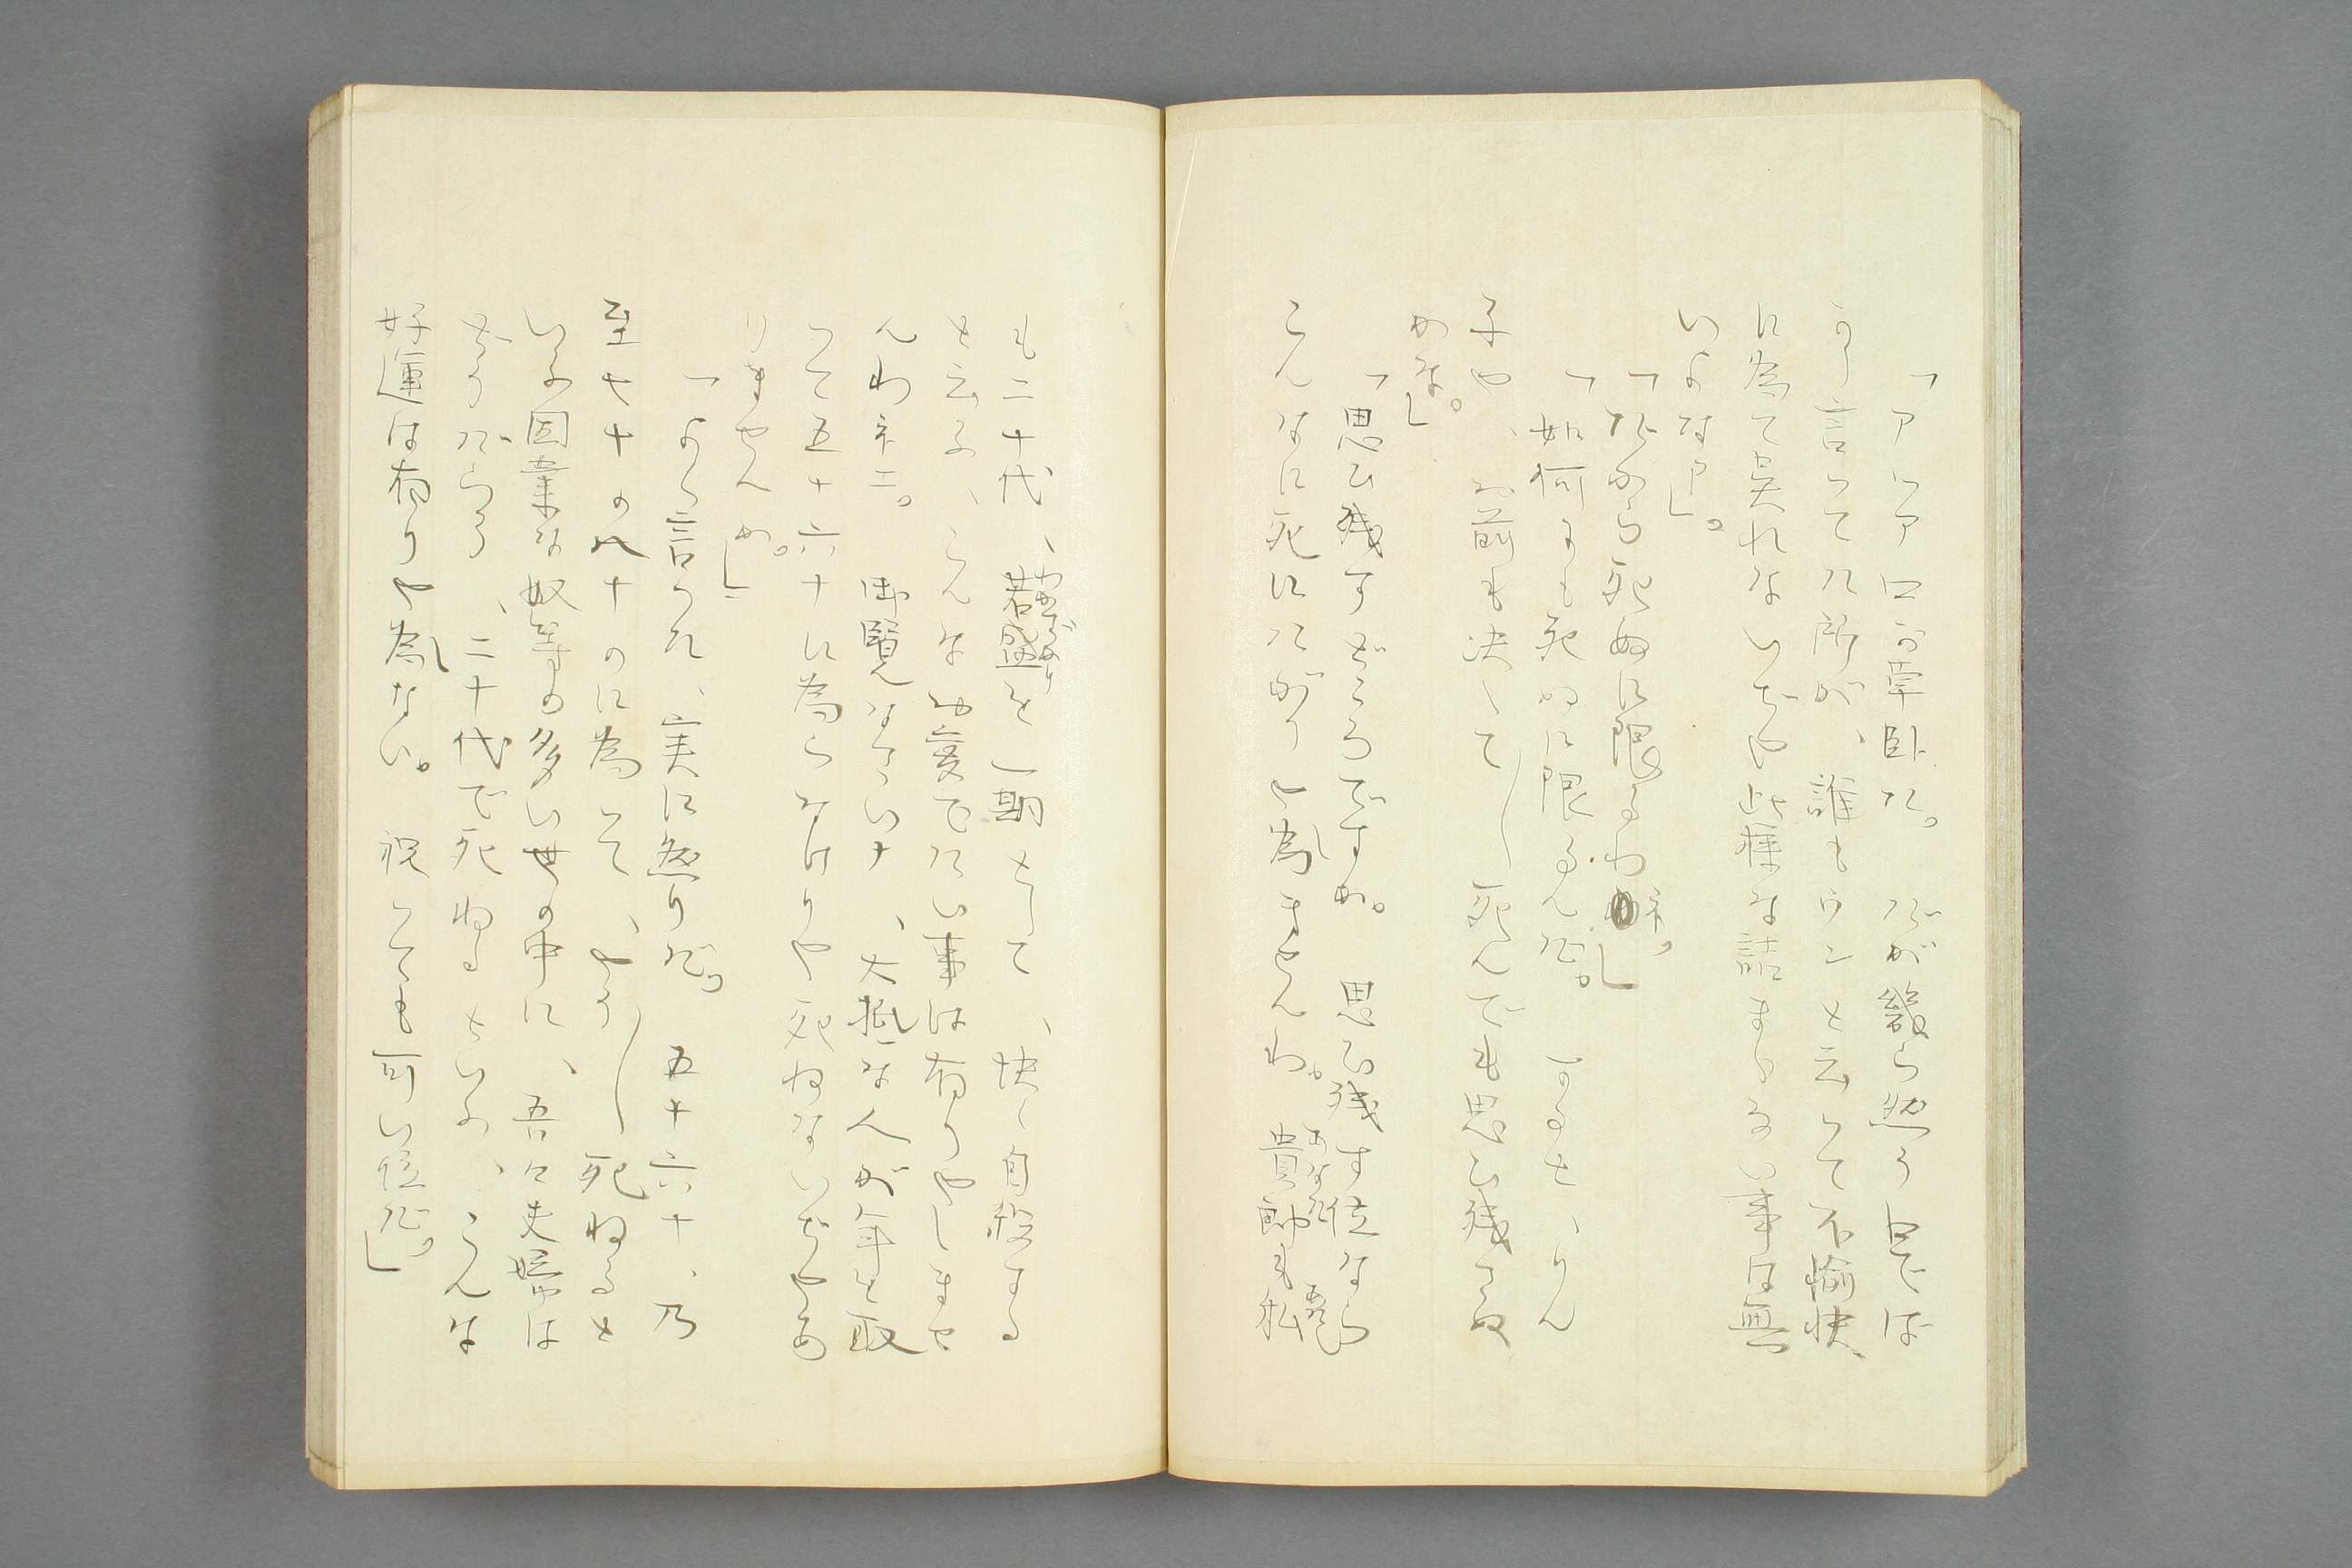 「アヽア口が草臥た。だが幾ら熱う口でば
かり言つてた所が、誰もウンと云つて不愉快
に為て呉れないぢや此様な詰まらない事は無
いよなア」。
「だから死ぬに限るわネ。」
「如何よも死ぬに限るんだ。するせ、りん
子や、お前も決して〳〵死んでも思ひ残さぬ
かな。」
「思ひ残すどころですか。思ひ残す位なら
こんなに死にたがりや為ませんわ。貴郎も私
も二十代、若盛を一期として、快く自殺する
と云ふ、こんなお芽でたい事は有りやしませ
んわネエ。御覧なさいナ、大抵な人が年を取
つて五十六十に為らなけりや死ねないぢやあ
りませんか。」
「よく言つた、実に然うだ。五十六十、乃
至七十の八十のに為つて、やう〳〵死ねると
いふ因業な奴等の多い世の中に、吾々夫婦は
どうだらう、二十代で死ねるといふ、こんな
好運は有りや為ない。祝つても可い位だ。」